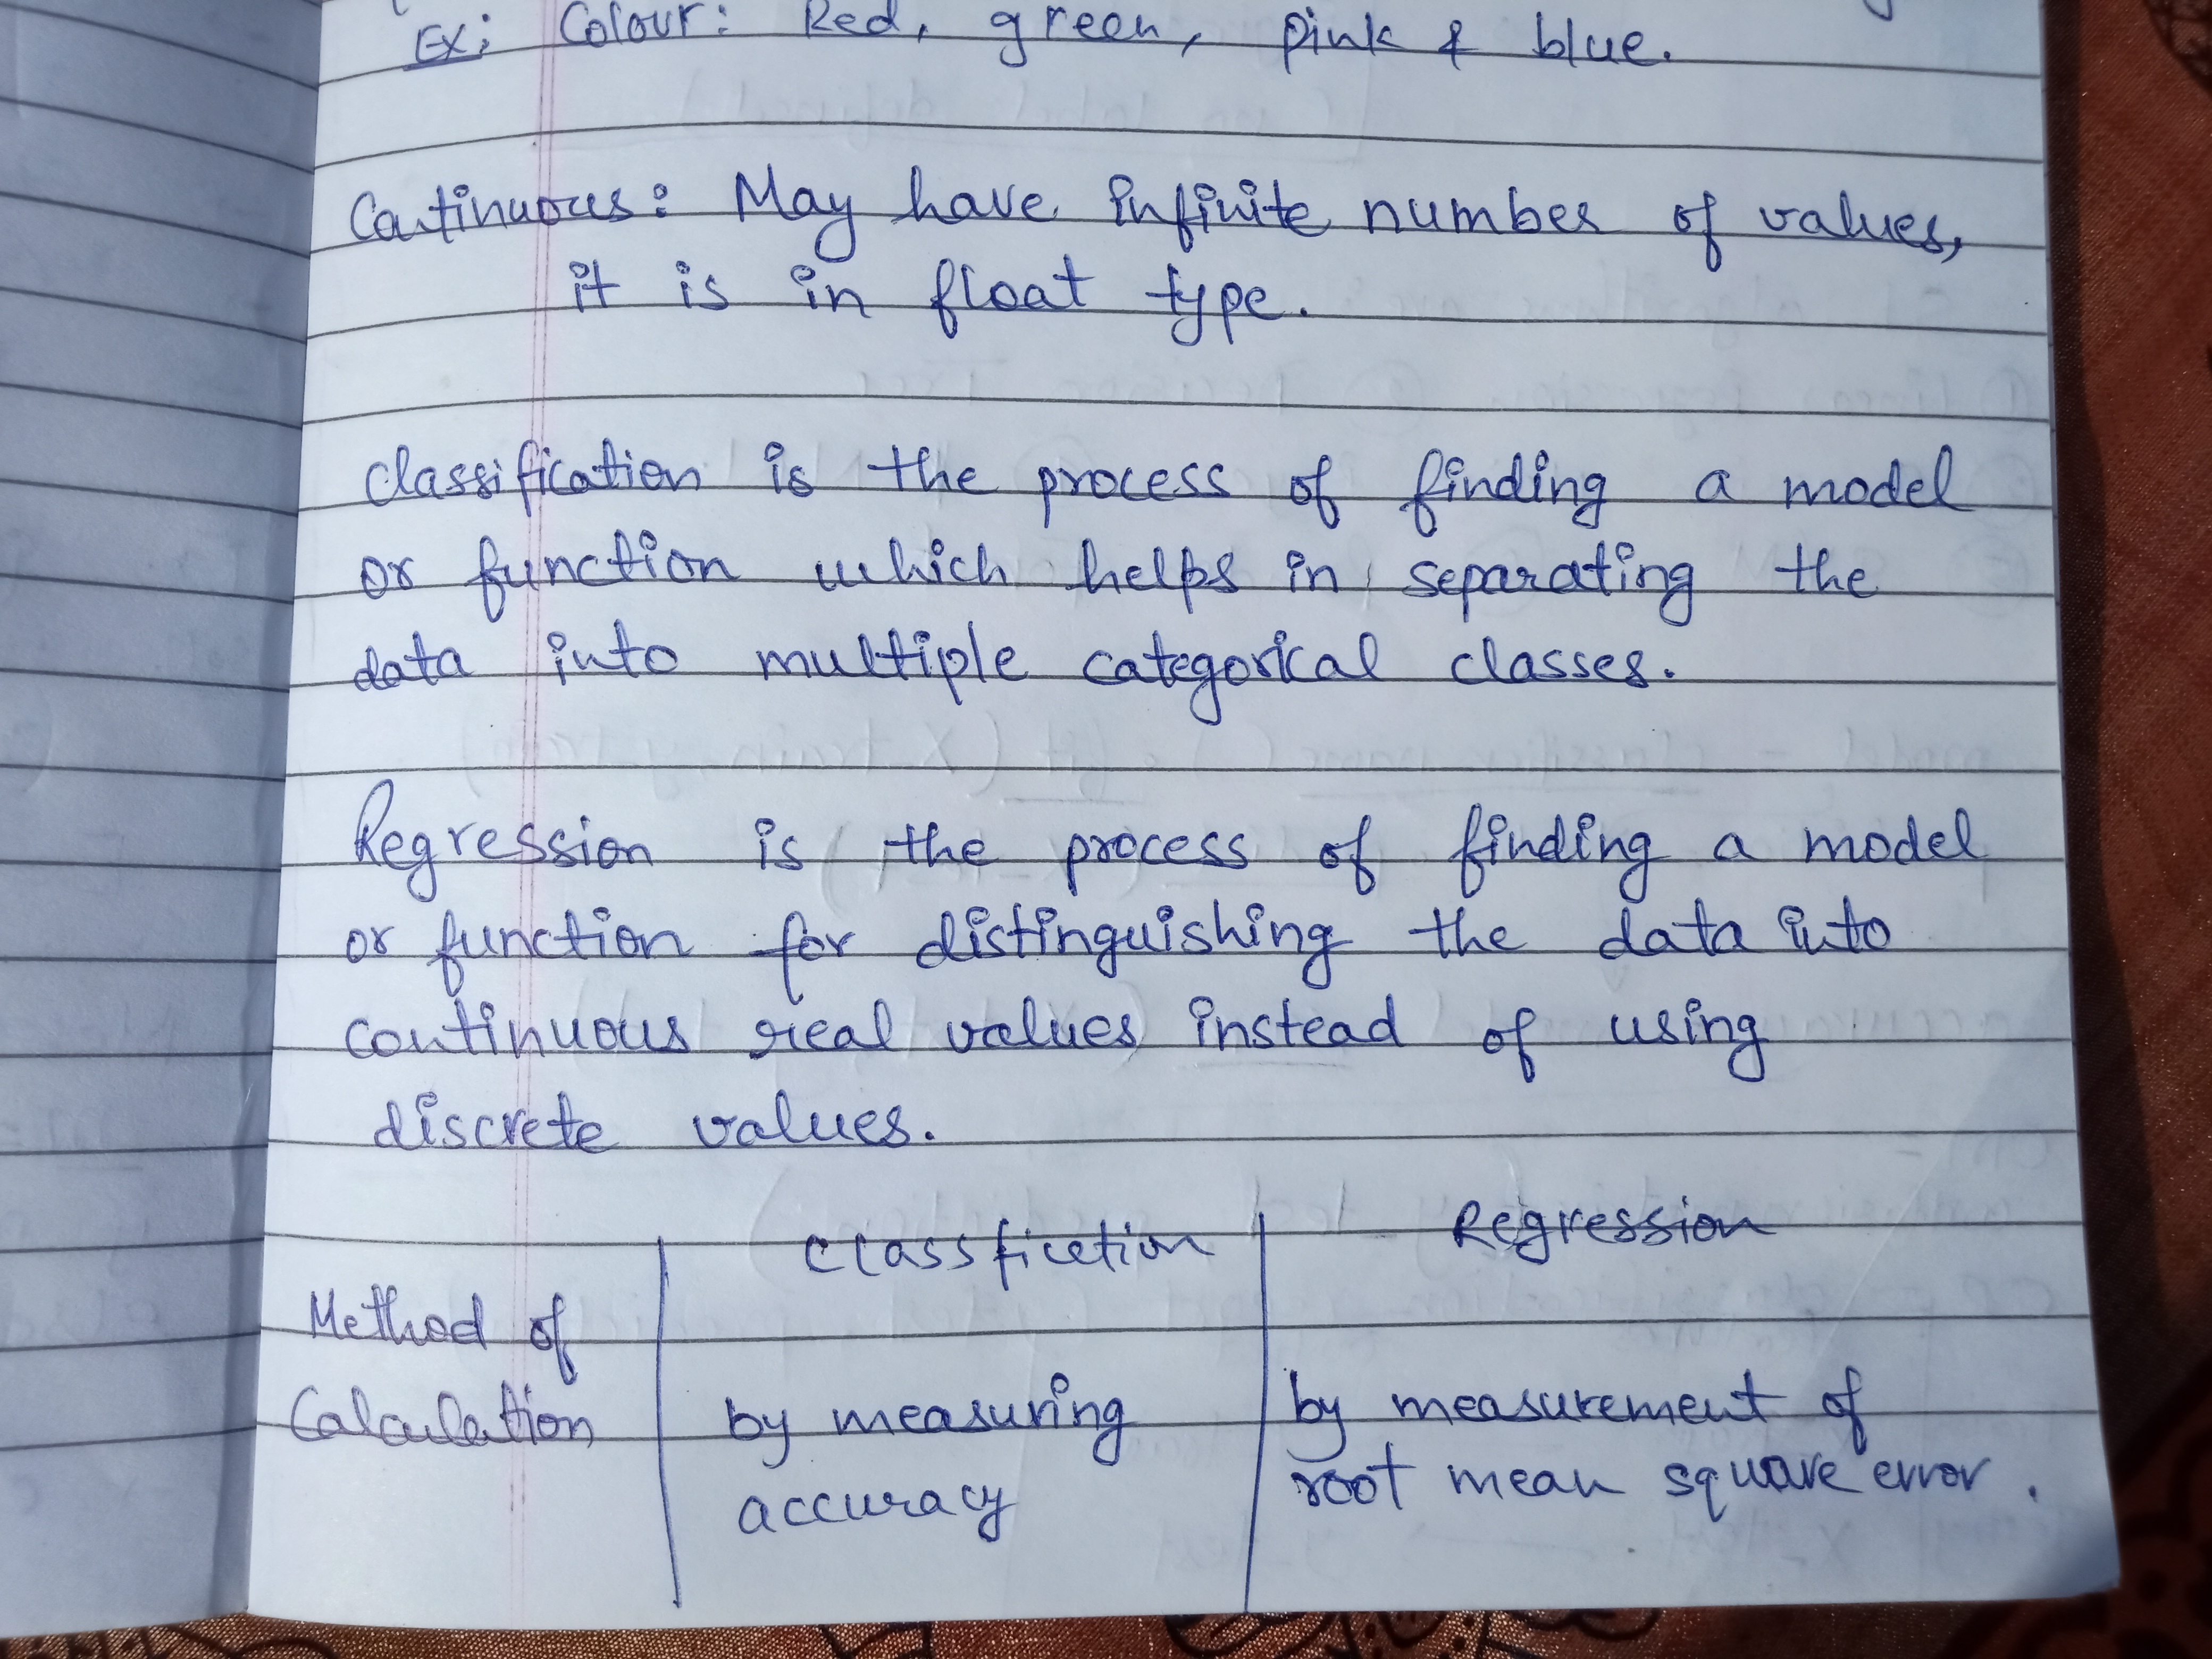 Ex: Colour: Red, green, pink & blue.
Continuous: May have infinite number of values,
it is in float type.
classification is the process of finding a model
or function which helps in separating the
data into multiple categorical classes.
Regression is the process of finding a model
or function for distinguishing the data into
continuous real values instead of using
discrete values.
Classfication Regression
Method of
Calculation by measuring by measurement of
accuracy root mean square error.